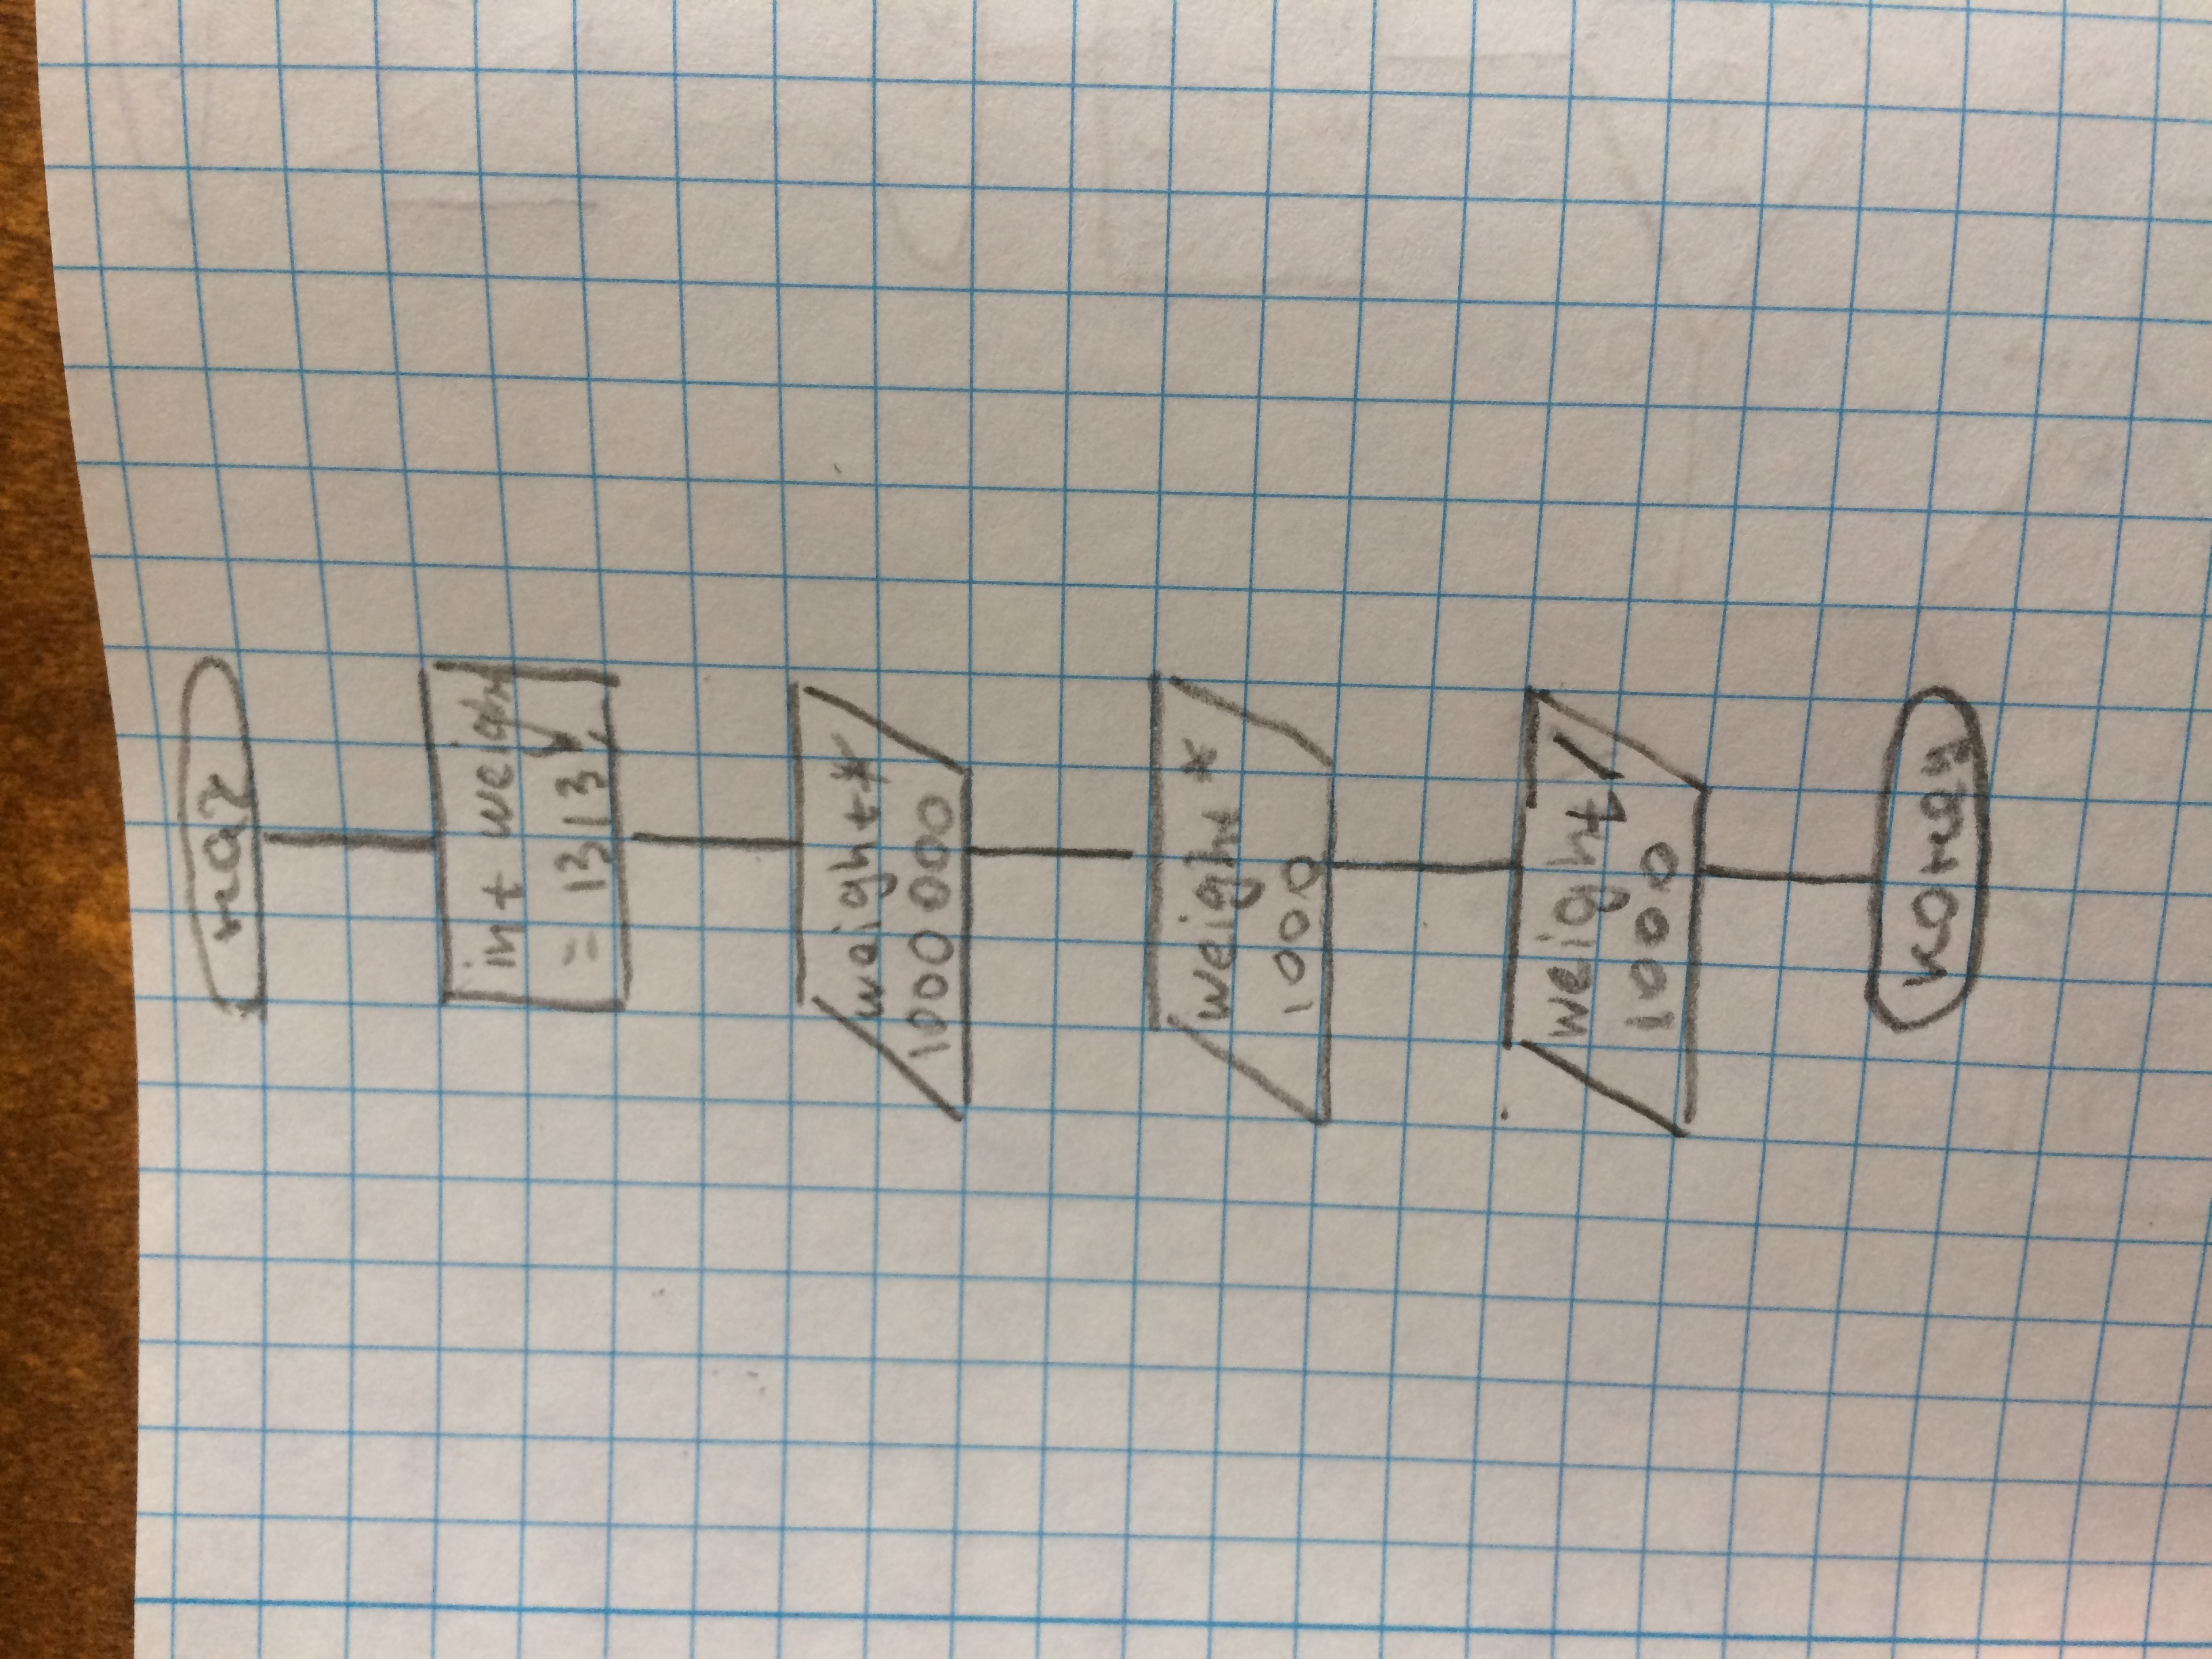 нач
int weight
= 1313;
weight *
1000 000
weight *
1000
weight /
1000
конец